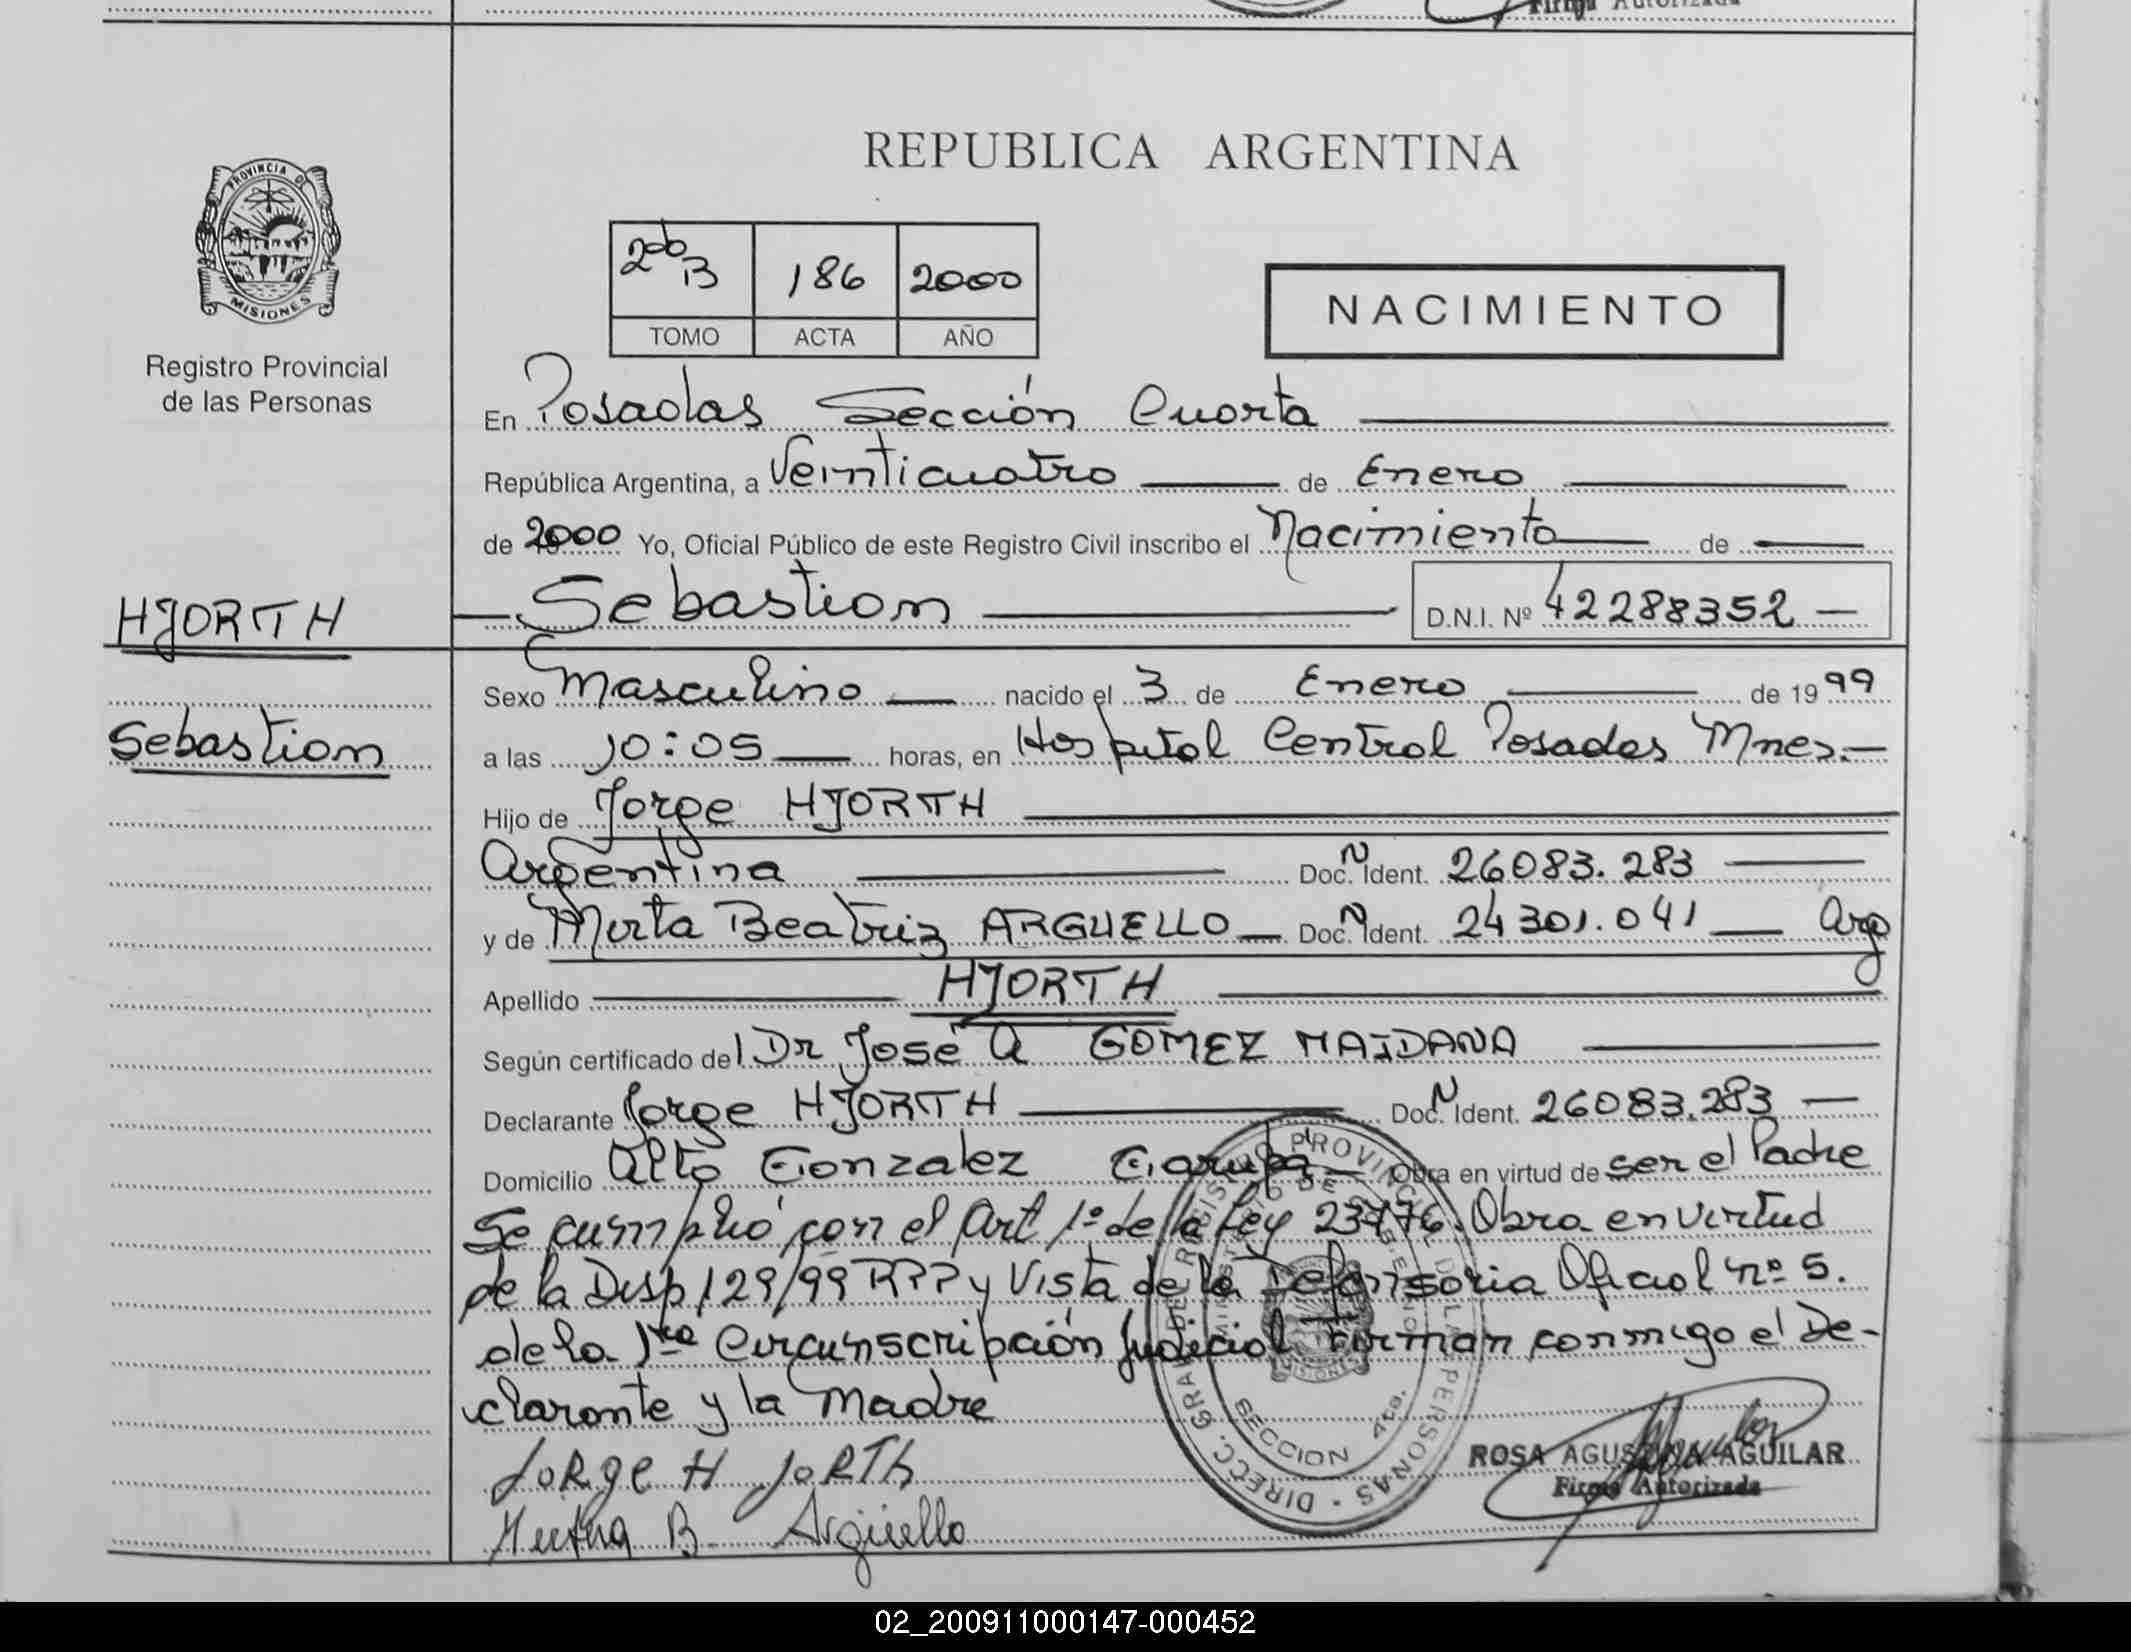 Firma Autorizada
REPUBLICA ARGENTINA
PROVINCIA DE MISIONES
Registro Provincial
de las Personas
2do B 186 2000
TOMO ACTA AÑO
NACIMIENTO
En Posadas Sección Cuarta
República Argentina, a Veinticuatro de Enero
de 2000 Yo, Oficial Público de este Registro Civil inscribo el Nacimiento de
HJORTH
Sebastian D.N.I. Nº 42288352
Sebastian
Sexo Masculino nacido el 3 de Enero de 1999
a las 10:05 horas, en Hospital Central Posadas Mnes.
Hijo de Jorge HJORTH
Argentina Doc. N Ident. 26083.283
y de Mirta Beatriz ARGUELLO Doc. N Ident. 24301.041 Arg
Apellido HJORTH
Según certificado del Dr José A GOMEZ MAIDANA
Declarante Jorge HJORTH Doc. N Ident. 26083.283
Domicilio Alto Gonzalez Garupá Obra en virtud de ser el Padre
Se cumplió con el Art 1º de la Ley 23776. Obra en virtud
de la Disp 129/99 RPP y Vista de la Defensoria Oficial nº 5.
de la 1ra Circunscripción Judicial Firman conmigo el De-
clarante y la Madre
JORGE HJORTH
Mirtha B. Argüello
DIRECC. GRAL. DE REGISTRO PROVINCIAL DE LAS PERSONAS
MINISTERIO DE GOBIERNO
SECCION 4ta.
ROSA AGUSTINA AGUILAR
Firma Autorizada
02_200911000147-000452